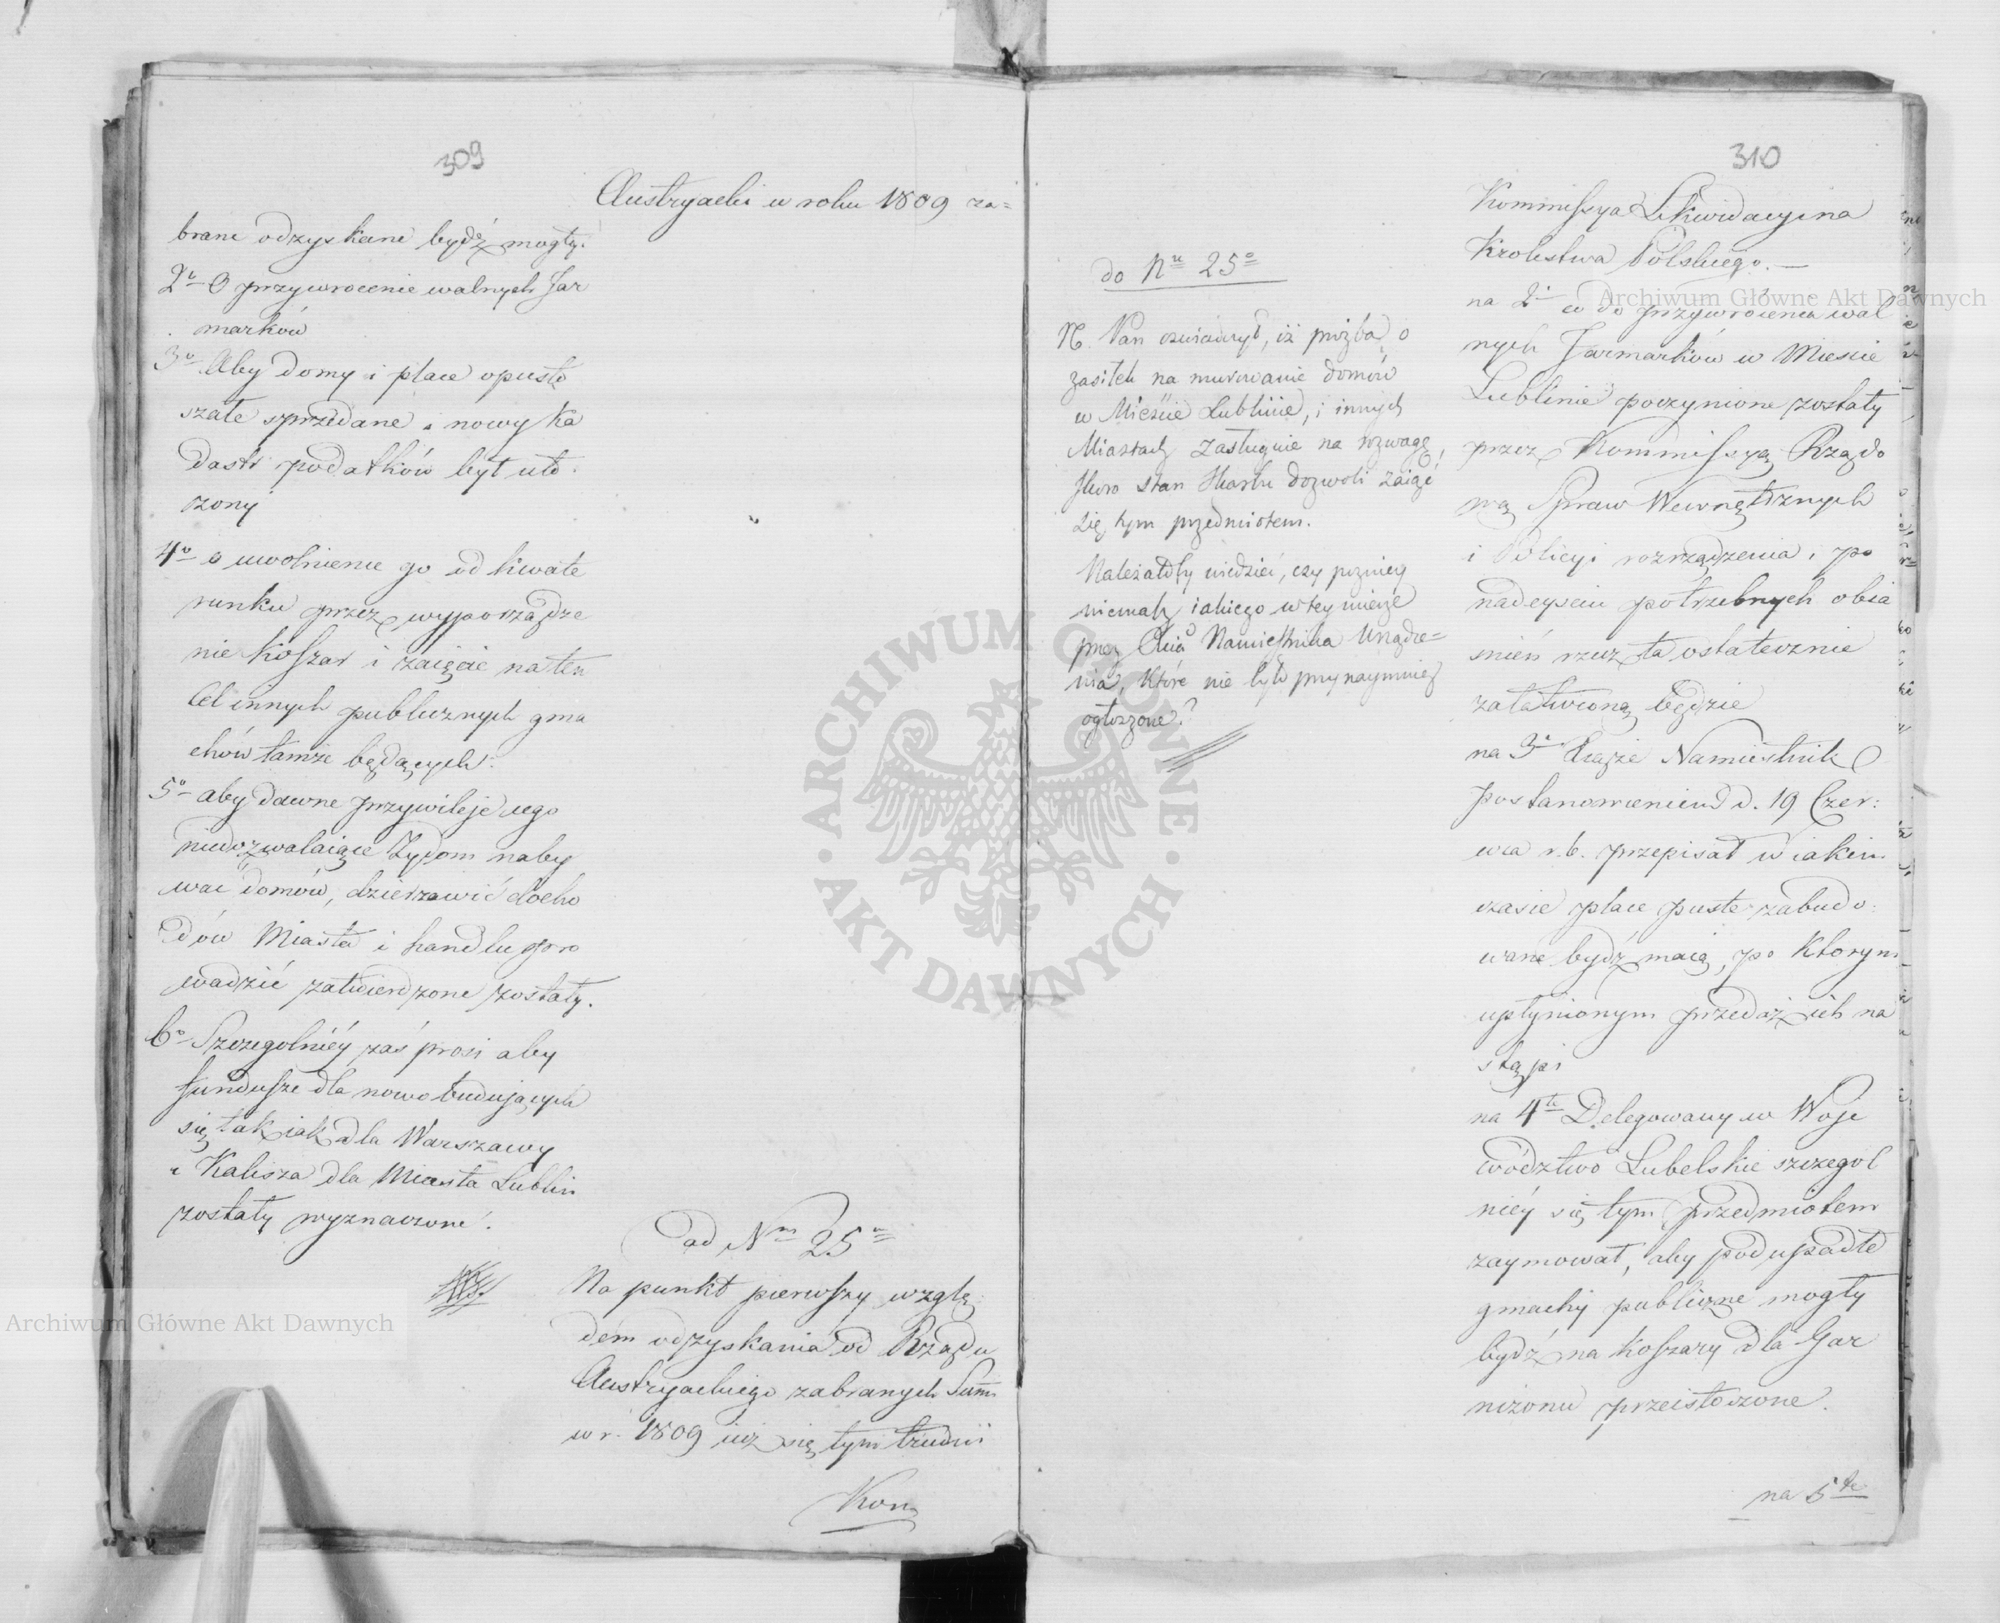 309
Austryacki w roku 1809 za=
brane odzyskane bydź mogły.
2o O przywrocenie walnych Jar
marków
3o Aby domy i place opusto
szałe sprzedane a nowy ka
dastr podatków był uło
żony
4o o uwolnienie go od kwate
runku przez wyporządze
nie koszar i zaięcie na ten
Cel innych publicznych gma
chów tamże będących.
5o aby dawne przywileje iego
niedozwalaiące Żydom naby
wać domów, dzierzawić docho
dów Miasta i handlu pro
wadzić zatwierdzone zostały.
6o Szczególniéy zaś prosi aby
fundusze dla nowo budujących
się tak iak dla Warszawy
i Kalisza dla Miasta Lublin
zostały wyznaczone.
ad Nm 25
Na punkt pierwszy wzglę
dem odzyskania od Rządu
Austryackiego zabranych Summ
w r. 1809 iuż się tym trudni
Kom
310
do Nu 25o
N. Pan oświadczył, iż prośba o
zasiłek na murowanie domów
w Mieście Lublinie, i innych
Miastach zasługuie na rozwagę,
skoro stan Skarbu dozwoli zaiąć
się tym przedmiotem.
Należałoby wiedzieć, czy pózniey
niemasz iakiego w tey mierze
przez Xcia Namiestnika Urządze=
nia, które nie było przynaymniey
ogłoszone?
Kommissya Likwidacyina
Krolestwa Polskiego. —
na 2e co do przywrócenia wal
nych Jarmarków w Mieście
Lublinie poczynione zostały
przez Kommissyą Rządo
wą Spraw Wewnętrznych
i Policyi rozrządzenia i po
nadeyściu potrzebnych obia
śnień rzecz ta ostatecznie
załatwioną będzie
na 3e Xiąże Namiestnik
postanowieniem d. 19 Czer:
wca r. b. przepisał w iakim
czasie place puste zabudo:
wane bydź maią, po którym
upłynionym przedaż ich na
stąpi
na 4te Delegowany w Woje
wództwo Lubelskie szczegól
niéy się tym przedmiotem
zaymował, aby podupadłe
gmachy publiczne mogły
bydź na koszary dla Gar
nizonu przeistoczone.
na 5te
ARCHIWUM GŁÓWNE AKT DAWNYCH
Archiwum Główne Akt Dawnych
Archiwum Główne Akt Dawnych